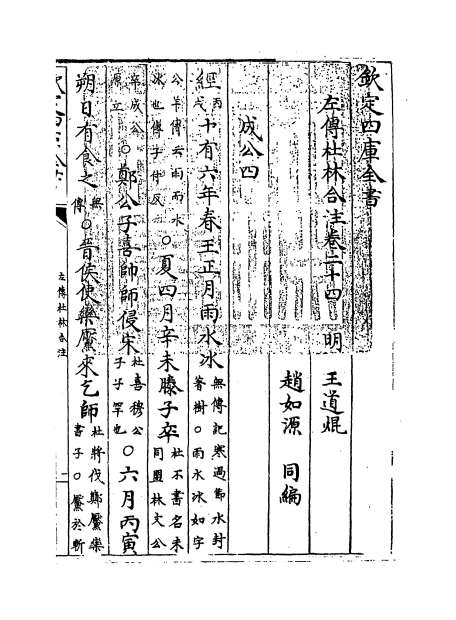 欽定四庫全書
左傳杜林合注卷二十四 明 王道焜
趙如源 同編
成公四
經 丙戌 十有六年春王正月雨水冰 無傳記寒過節水封著樹○雨水冰如字
公羊傳云雨雨水冰也傳子付反 ○夏四月辛未滕子卒 杜不書名未同盟林文公
卒成公原立 ○鄭公子喜帥師侵宋 杜喜穆公子子罕也 ○六月丙寅
朔日有食之 無傳 ○晉侯使欒黶來乞師 杜將伐鄭黶欒書子○黶於斬
左傳杜林合注
一